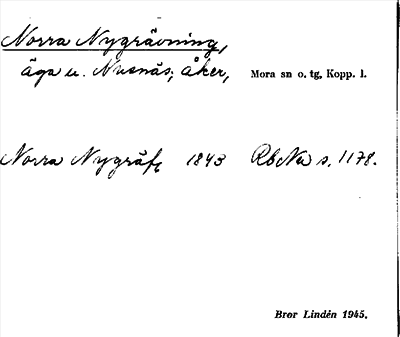 Norra Nygrävning,
äga u. Nusnäs; åker, Mora sn o. tg, Kopp. l.
Norra Nygräfv 1843 RbNu s. 1178.
Bror Lindén 1945.